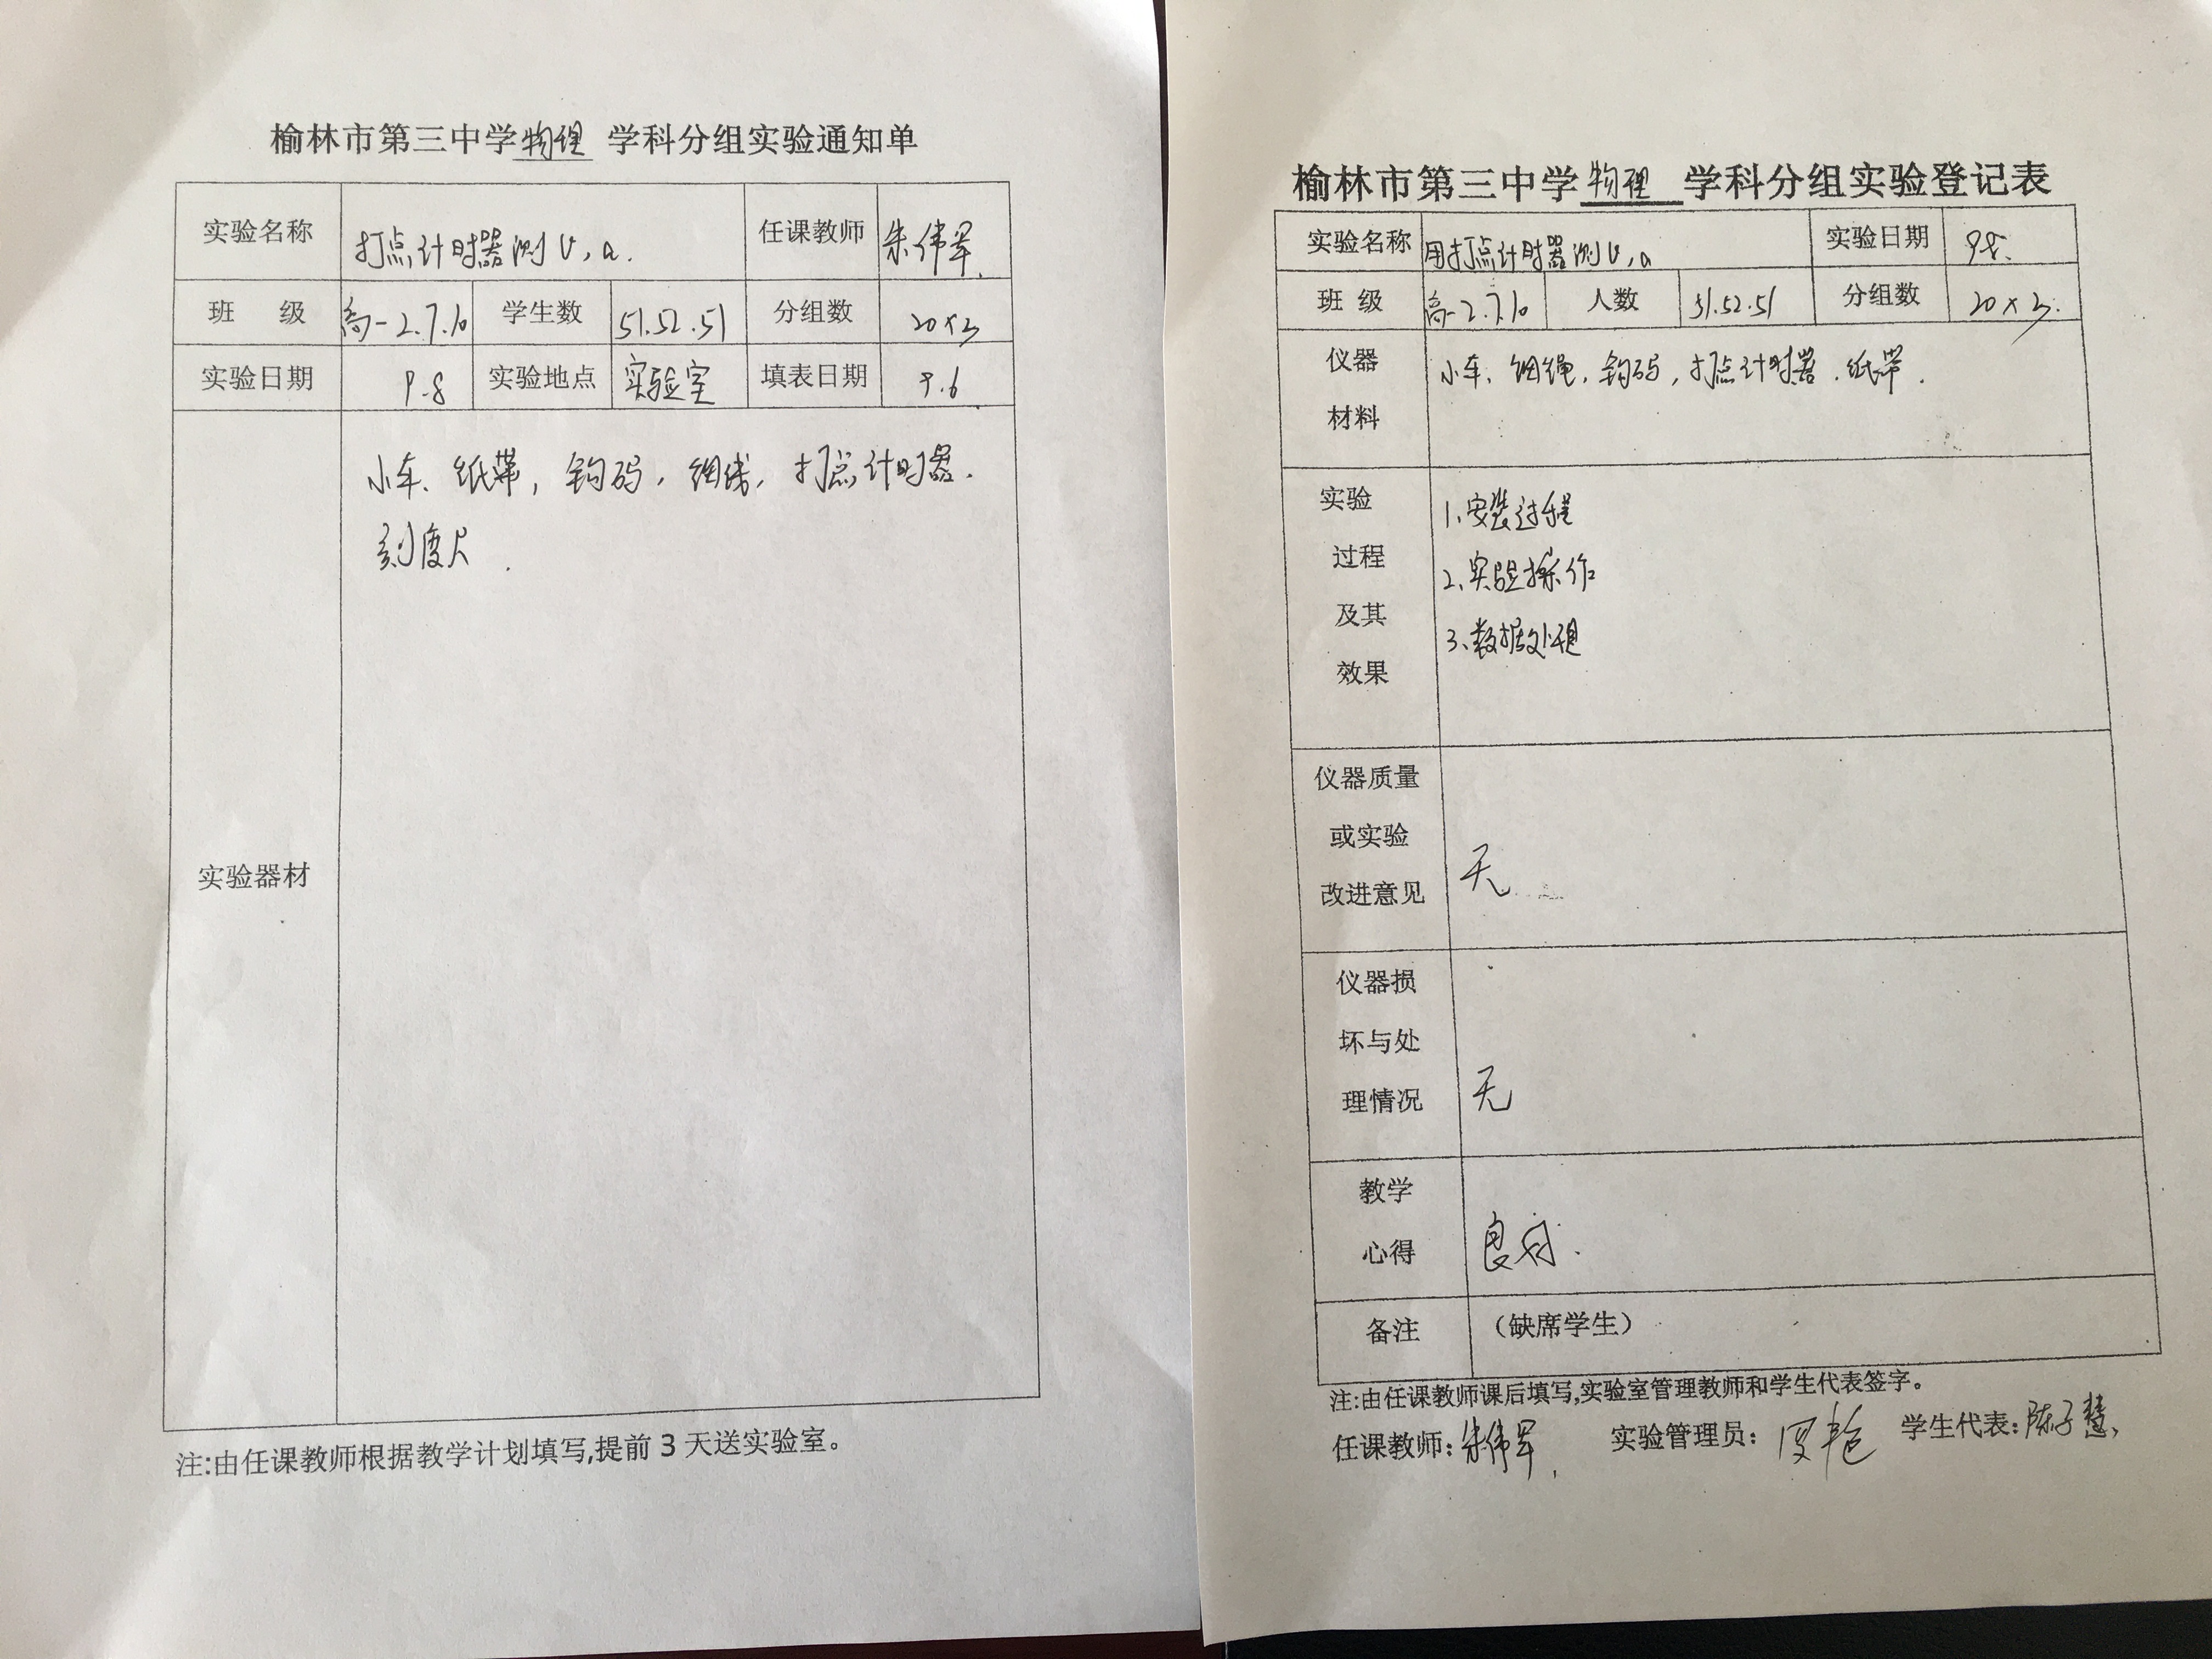 榆林市第三中学物理 学科分组实验通知单
实验名称 打点计时器测v,a. 任课教师 朱伟军.
班 级 高一2.7.10 学生数 51.52.51 分组数 20×3
实验日期 9.8 实验地点 实验室 填表日期 9.6
小车、纸带,钩码,细线,打点计时器.
刻度尺.
实验器材
注:由任课教师根据教学计划填写,提前3天送实验室。
榆林市第三中学物理 学科分组实验登记表
实验名称 用打点计时器测v,a 实验日期 9.8.
班 级 高一2.7.10 人数 51.52.51 分组数 20×3.
仪器
材料
小车、细绳,钩码,打点计时器.纸带.
实验
过程
及其
效果
1、安装过程
2、实验操作
3、数据处理
仪器质量
或实验
改进意见
无
仪器损
坏与处
理情况
无
教学
心得
良好.
备注 (缺席学生)
注:由任课教师课后填写,实验室管理教师和学生代表签字。
任课教师:朱伟军. 实验管理员: 学生代表:陈子慧,